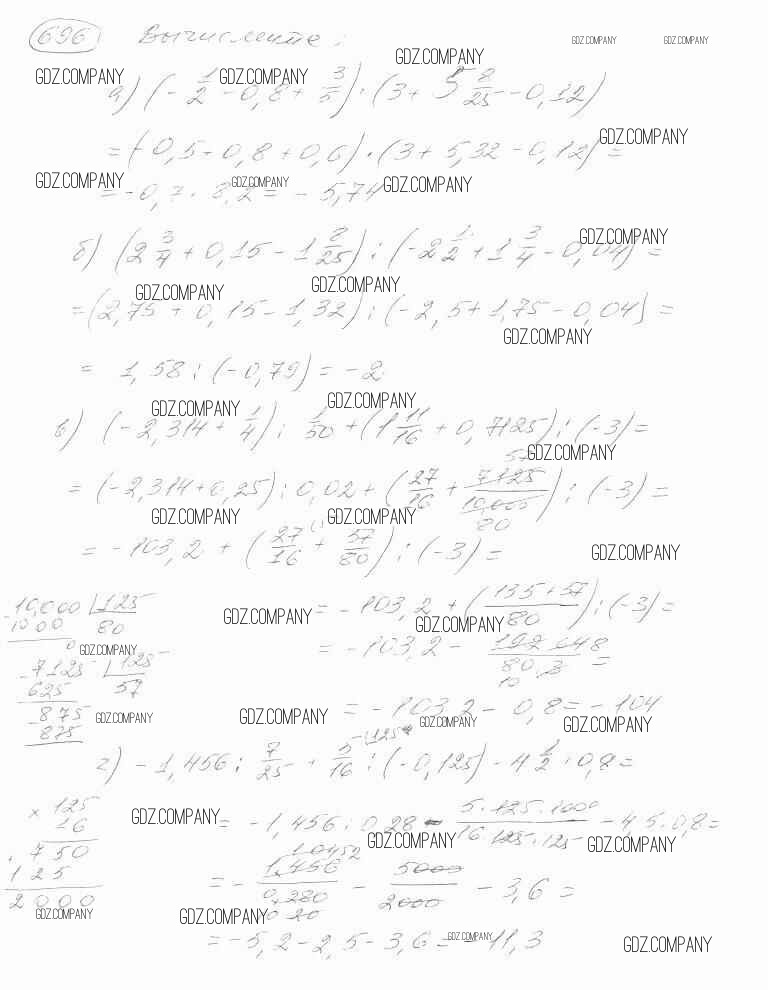 696 Вычислите: GDZ.COMPANY GDZ.COMPANY
GDZ.COMPANY
GDZ.COMPANY GDZ.COMPANY
а) (-1/2 - 0,8 + 3/5) · (3 + 5 8/25 - 0,12)
GDZ.COMPANY
= (-0,5 - 0,8 + 0,6) · (3 + 5,32 - 0,12) =
GDZ.COMPANY GDZ.COMPANY GDZ.COMPANY
= -0,7 · 8,2 = -5,74
GDZ.COMPANY
б) (2 3/4 + 0,15 - 1 8/25) : (-2 1/2 + 1 3/4 - 0,04) =
GDZ.COMPANY GDZ.COMPANY
= (2,75 + 0,15 - 1,32) : (-2,5 + 1,75 - 0,04) =
GDZ.COMPANY
= 1,58 : (-0,79) = -2.
GDZ.COMPANY GDZ.COMPANY
в) (-2,314 + 1/4) : 1/50 + (1 11/16 + 0,7125) : (-3) =
GDZ.COMPANY
= (-2,314 + 0,25) : 0,02 + (27/16 + 7125/10,000) : (-3) =
57
80
GDZ.COMPANY GDZ.COMPANY
= -103,2 + (27/16 + 57/80) : (-3) =
GDZ.COMPANY
= -103,2 + ((135 + 57)/80) : (-3) =
GDZ.COMPANY GDZ.COMPANY
= -103,2 - 192 64 8/80 · 3 =
10
= -103,2 - 0,8 = -104
GDZ.COMPANY GDZ.COMPANY GDZ.COMPANY
10,000 125
1000 80
0
GDZ.COMPANY
7125 125
625 57
875
875
GDZ.COMPANY
г) -1,456 : 7/25 + 5/16 : (-0,125) - 4 1/2 · 0,8 =
GDZ.COMPANY
= -1,456 : 0,28 - 5 · 125 · 1000/16 · 125 · 125 - 4,5 · 0,8 =
GDZ.COMPANY GDZ.COMPANY
= - 1,456/0,280 - 5000/2000 - 3,6 =
GDZ.COMPANY
= -5,2 - 2,5 - 3,6 = -11,3
GDZ.COMPANY GDZ.COMPANY
× 125
16
750
125
2000
GDZ.COMPANY